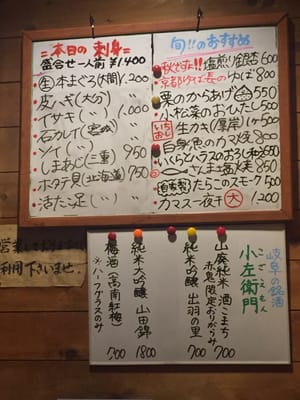 =本日の刺身=
盛合せ一人前 ¥1,400
生本まぐろ(大間) 1,200
皮ハギ(大分) 〃
イサキ( 〃 ) 1,000
石カレイ(宮城) 〃
ソイ( 〃 ) 950
しまあじ(三重) 950
ホタテ貝(北海道) 750
活たこ足( 〃 ) 〃
旬!!のおすすめ
秋ですよ!!塩煎り銀杏 600
京都ゆば 800
栗のからあげ 550
小松菜のおひたし 500
いちおし 生カキ(厚岸)
白身魚のカマ焼 800
いくらとハラスのおろし 550
さんま塩焼 850
自家製 たらこのスモーク 500
カマス一夜干 大 1,200
営業しております
利用下さいませ。
岐阜の銘酒
こざえもん
小左衛門
山廃純米 酒こまち
赤鬼限定おりがらみ 700
純米吟醸 出羽の里 700
純米大吟醸 山田錦 1800
梅酒(高南紅梅)
※ハーフグラスのみ 700